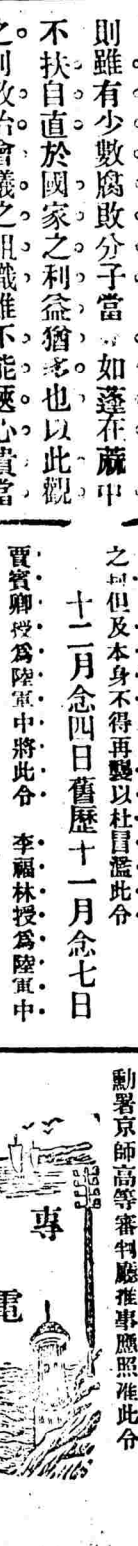 則雖有少數腐敗分子當如蓬在蔴中
不扶自直於國家之利益猶多也以此觀
之則政治會議之組織雖不能遽心貴當
之列但及本身不得再襲以杜冒濫此令
十二月念四日舊歷十一月念七日
賈賓卿授爲陸軍中將此令　李福林授爲陸軍中
勳署京師高等審判廳推事應照准此令
專
電